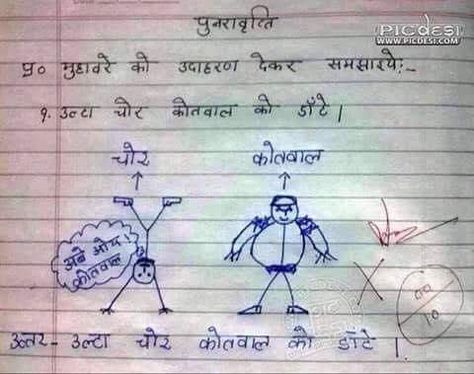 पुनरावृत्ति
PICDESI
WWW.PICDESI.COM
प्र० मुहावरे को उदाहरण देकर समझाइये:-
१. उल्टा चोर कोतवाल को डाँटे |
चोर
कोतवाल
अबे ओय
कोतवाल
10
उत्तर - उल्टा चोर कोतवाल को डाँटे |